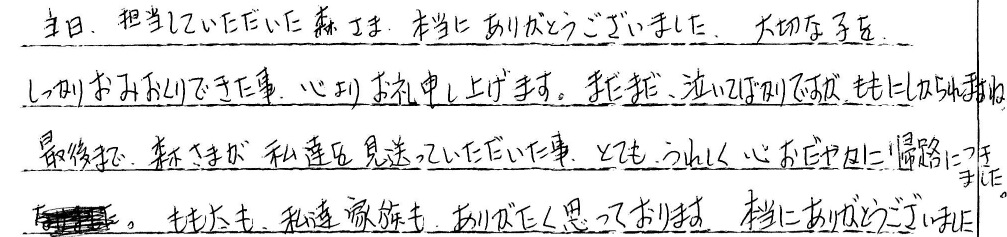 当日、担当していただいた森さま、本当にありがとうございました。大切な子を、
しっかりおみおくりできた事、心よりお礼申し上げます。まだまだ、泣いてばかりですが、ももにしかられますね
最後まで、森さまが私達を見送っていただいた事、とても、うれしく心おだやかに帰路につきました。
。ももたも、私達家族も、ありがたく思っております 本当にありがとうございました